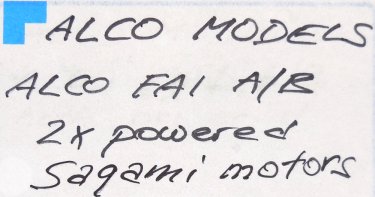 ALCO MODELS
ALCO FA1 A/B
2x powered
Sagami motors